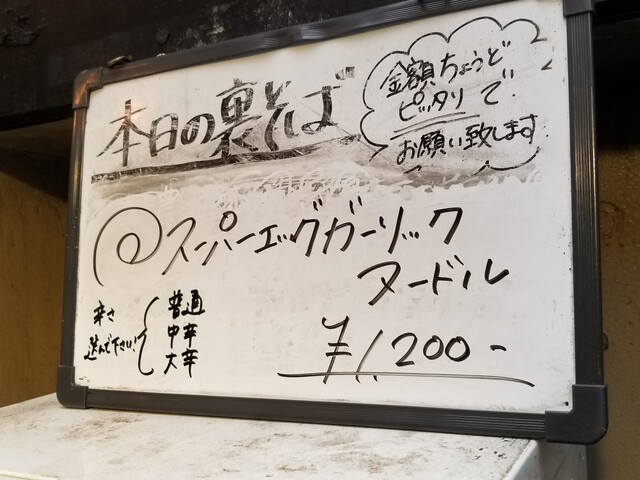 本日の裏そば
金額ちょうど
ピッタリで
お願い致します
@スーパーエッグガーリック
ヌードル
辛さ
選んで下さい!
普通
中辛
大辛
¥1,200-